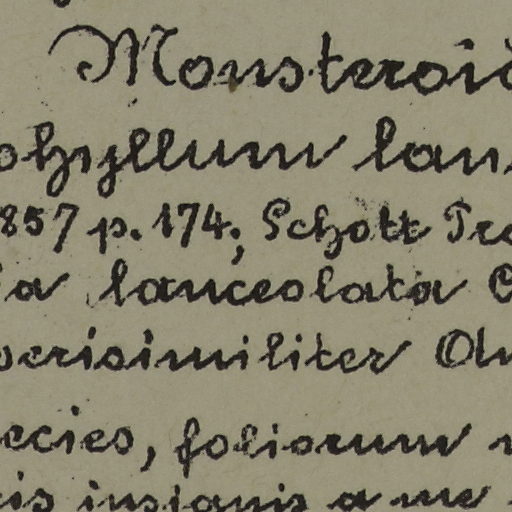 Monsteroid
ohyllum lan
857 p. 174; Schott Pro
ia lanceolata C
verisimiliter Ohn
ecies, foliorum
cis insignis a me